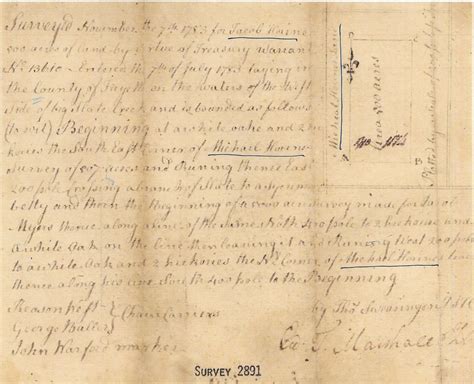 Survey'd November the 7th 1783 for Jacob Horine
500 acres of land by virtue of Treasury Warrant
No. 13610 - Entered the 7th of July 1783 Laying in
the County of Fayette on the waters of the West
Side of Slate Creek and is bounded as follows
(to wit) Beginning at a white oake and 2 hic
kories the South East Corner of Michael Horines
Survey of 507 acres and Runing thence East
200 pole Crossing a branch of Slate to a
betty and thorn the Beginning of a acre Survey made for Jacob
Myers thence along a line of the same North 400 pole to 2 hickories and
a white Oak on the line then leaving it and Runing West 200 pole
to a white Oak and 2 hickories the N. Corner of Michael Horines line
thence along his line South 400 pole to the Beginning
Chain Carriers
George Balla
John Warford marker
by Thos. Swearingen D.S.
Ex. T. Marshall
Michael Horines line
Area 500 acres
SURVEY 2891